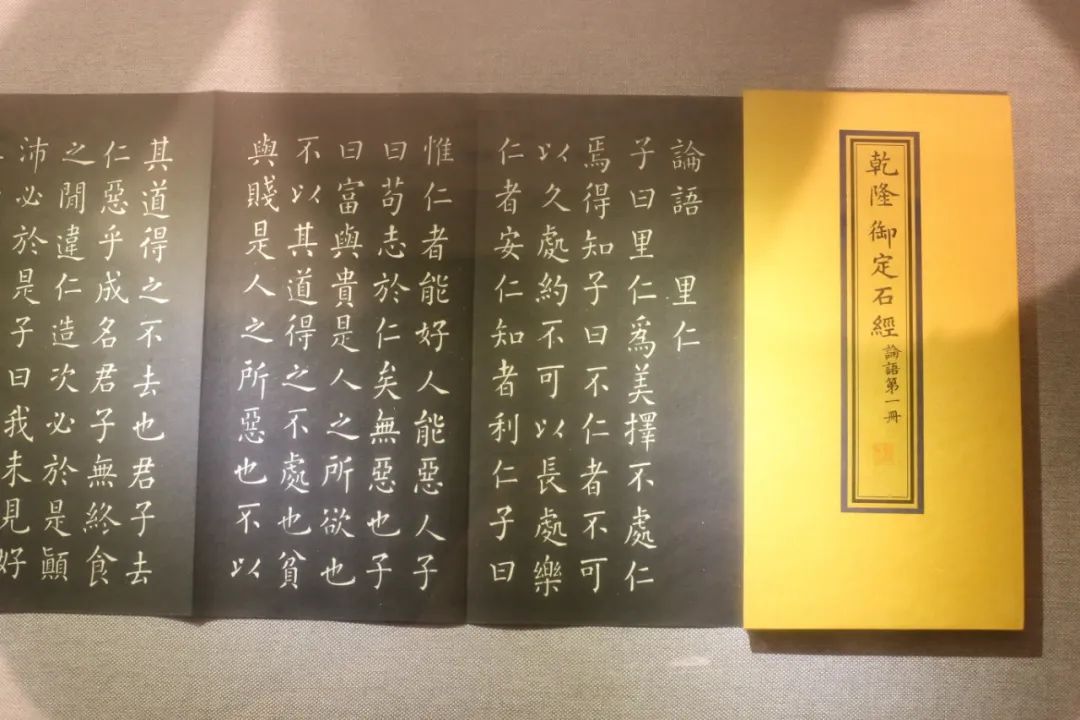 乾隆御定石經論語第一冊
論語 里仁
子曰里仁爲美擇不處仁
焉得知子曰不仁者不可
以久處約不可以長處樂
仁者安仁知者利仁子曰
惟仁者能好人能惡人子
曰苟志於仁矣無惡也子
曰富與貴是人之所欲也
不以其道得之不處也貧
與賤是人之所惡也不以
其道得之不去也君子去
仁惡乎成名君子無終食
之閒違仁造次必於是顚
沛必於是子曰我未見好